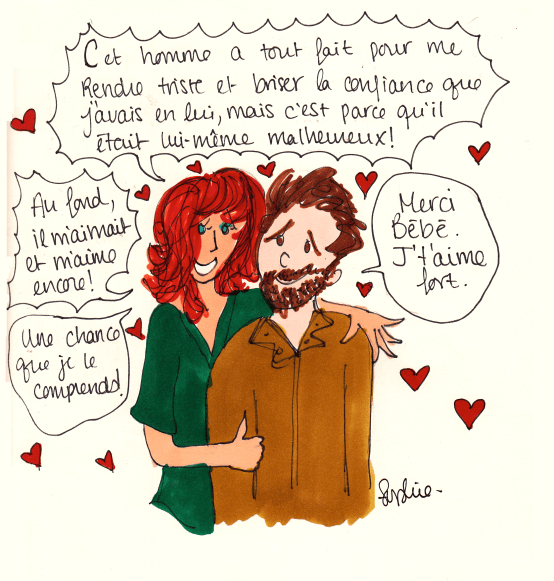 Cet homme a tout fait pour me
Rendre triste et briser la confiance que
j'avais en lui, mais c'est parce qu'il
était lui-même malheureux!
Au fond,
il m'aimait
et m'aime
encore!
Une chance
que je le
comprends!
Merci
Bébé.
J't'aime
fort.